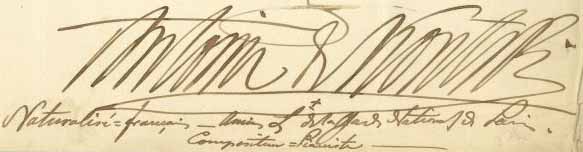 Antoine de Kontski
Naturalisé=français — Ancien Lt de la Garde National de Paris.
Compositeur = Pianiste —